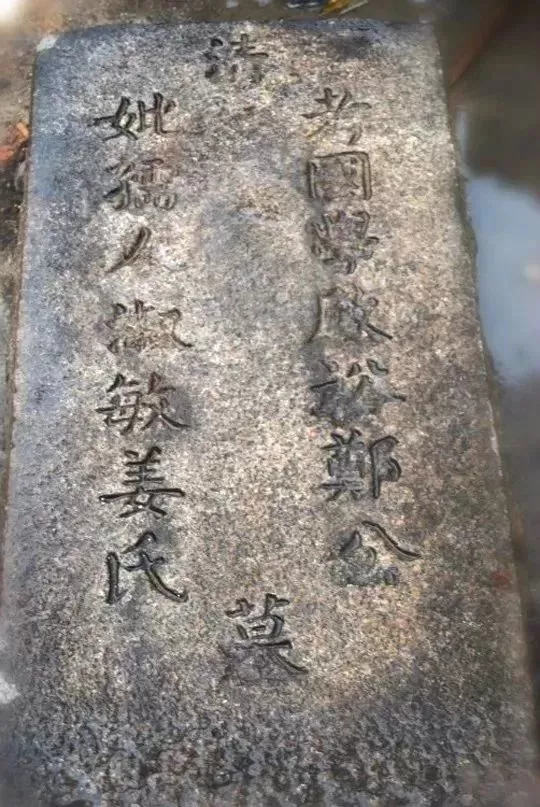 清
考國學啟裕鄭公
妣孺人淑敏姜氏
墓